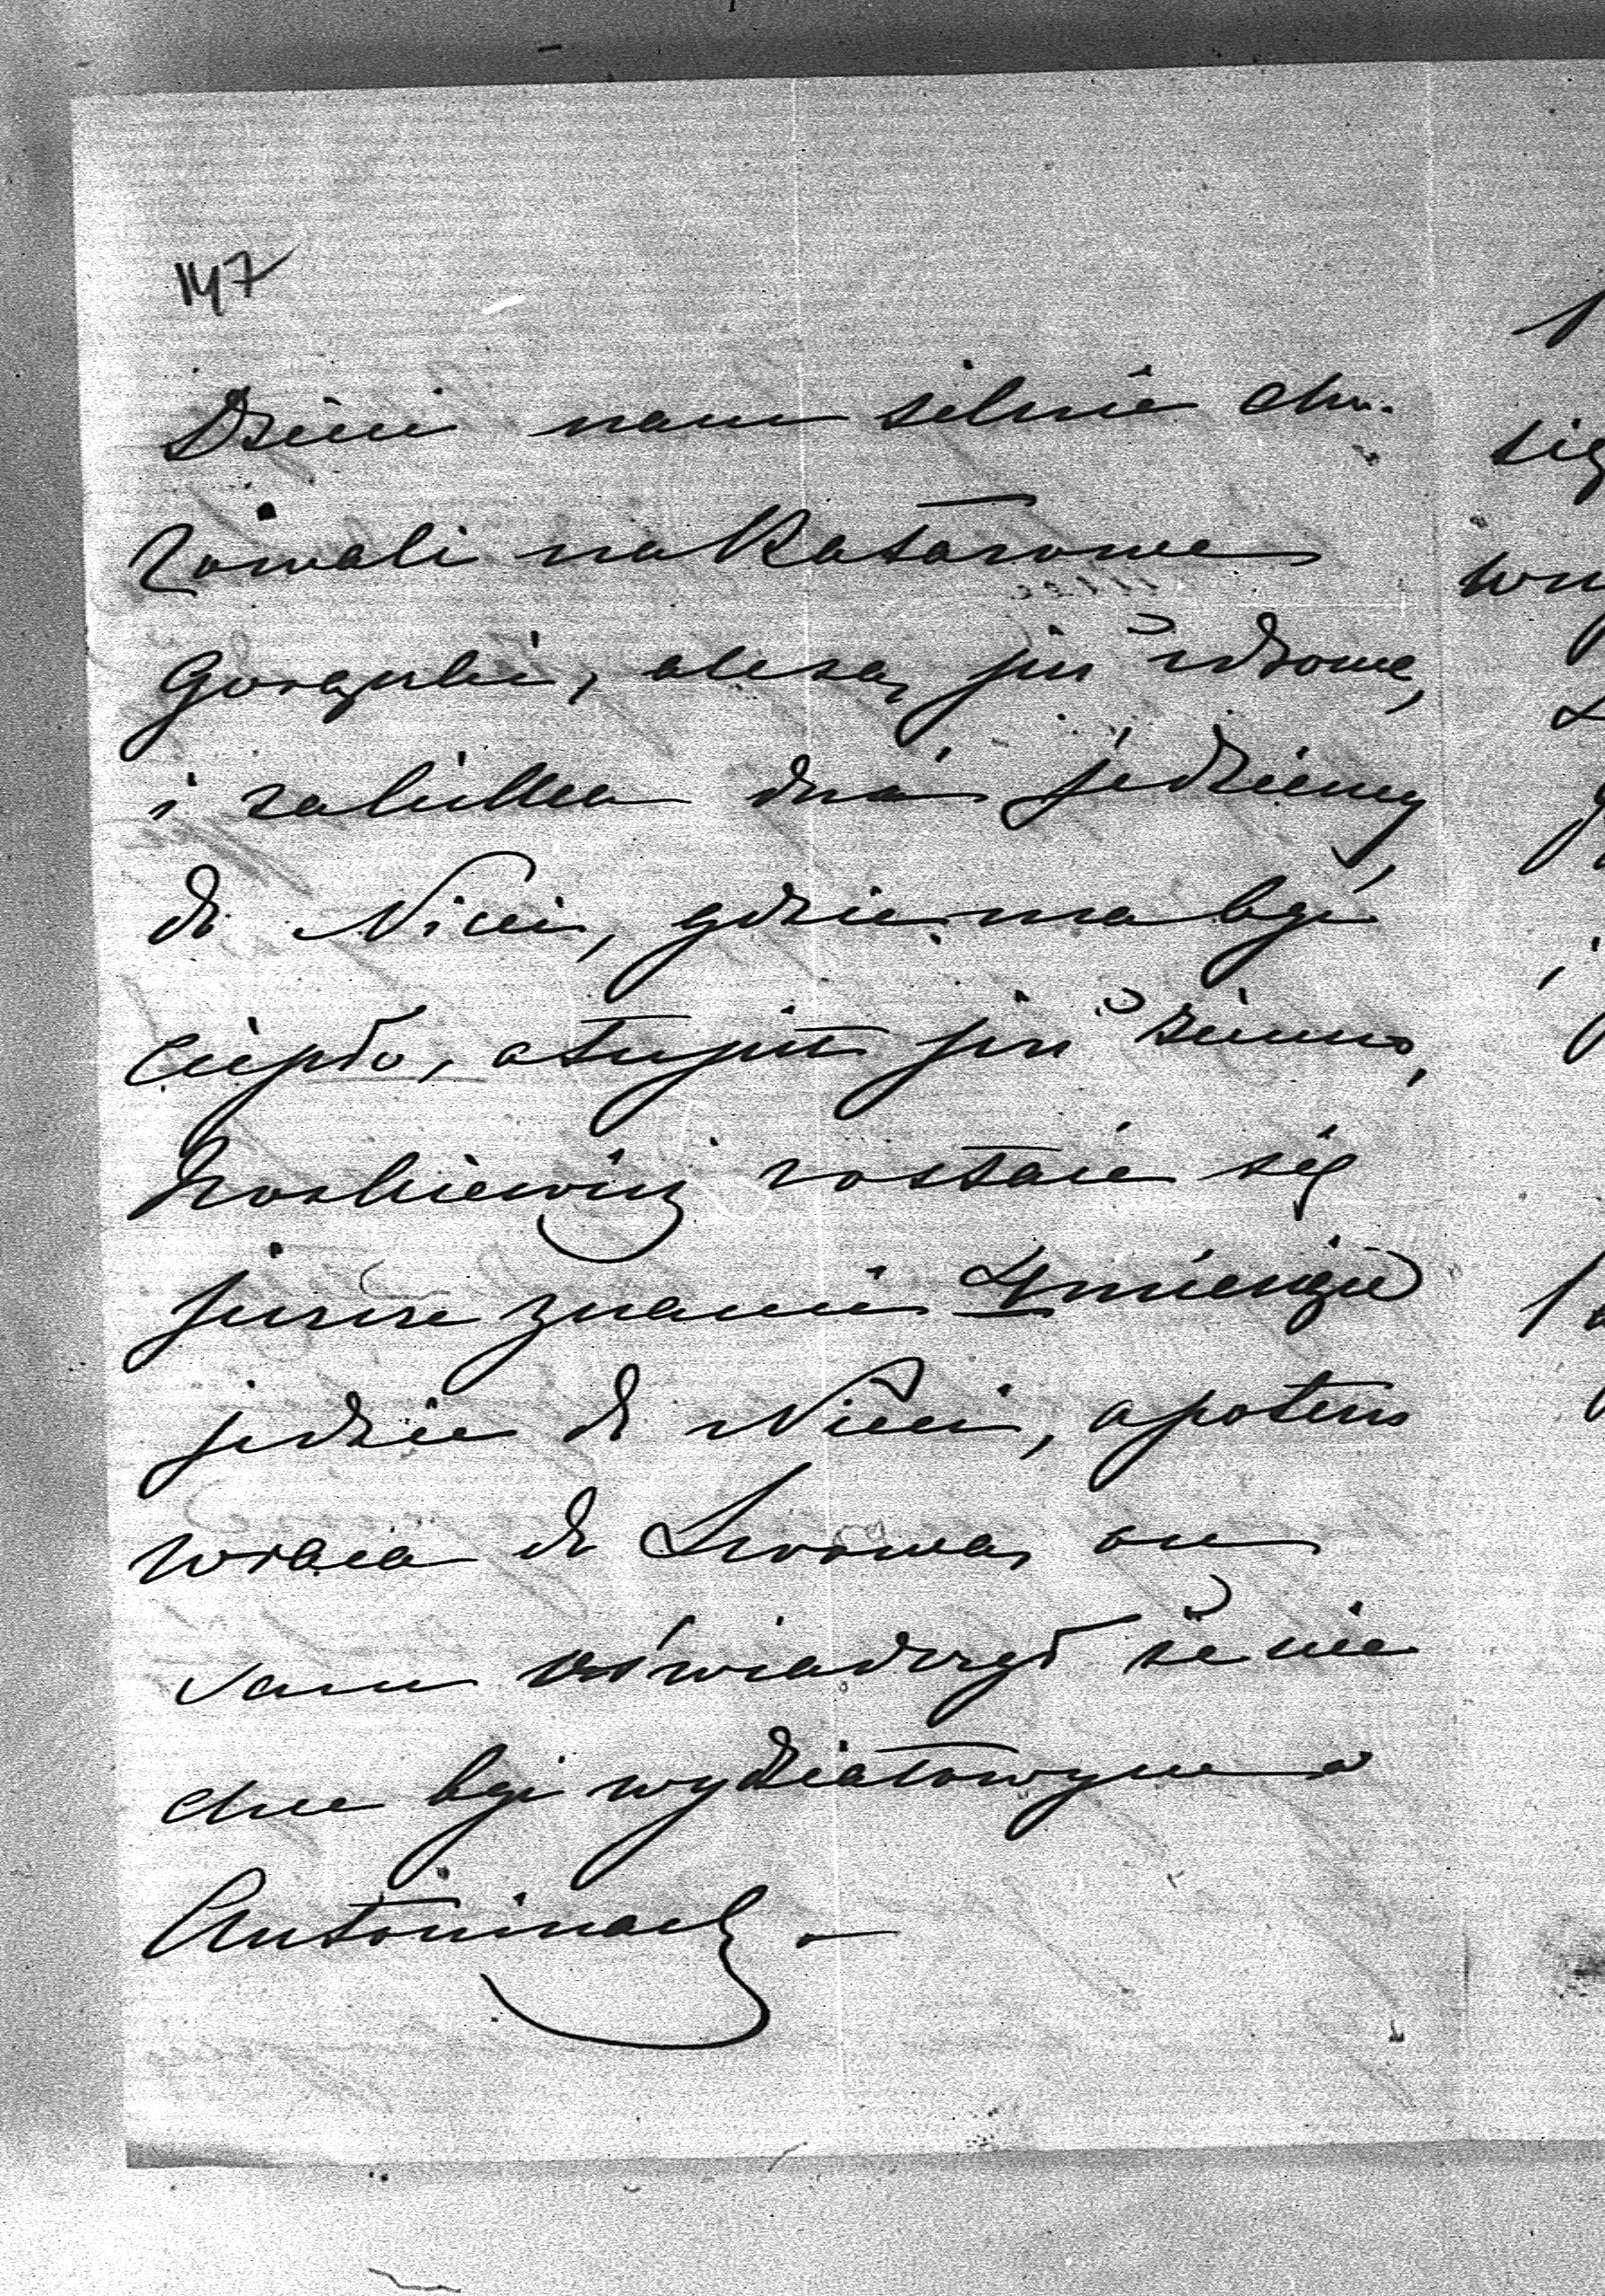 147
Dzieci nam silnie cho-
rowali na Katarowe
gorączki, ale są już zdrowe,
i za kilka dni jedziemy
do Nicei, gdzie ma być
ciepło, a tu jest już zimno,
zostaie się
jeszcze z nami 4 miesiące
jedzie do Nicei, a potem
wraca do Lwowa, on
sam oświadczył że nie
chce być wydziałowym w
Antoninach –